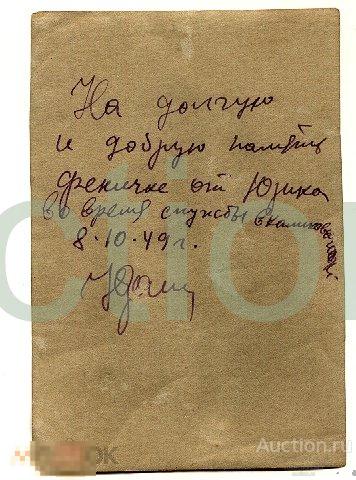 На долгую
и добрую память
Феничке от Юрика
во время службы в
8.10.49 г.
Auction.ru